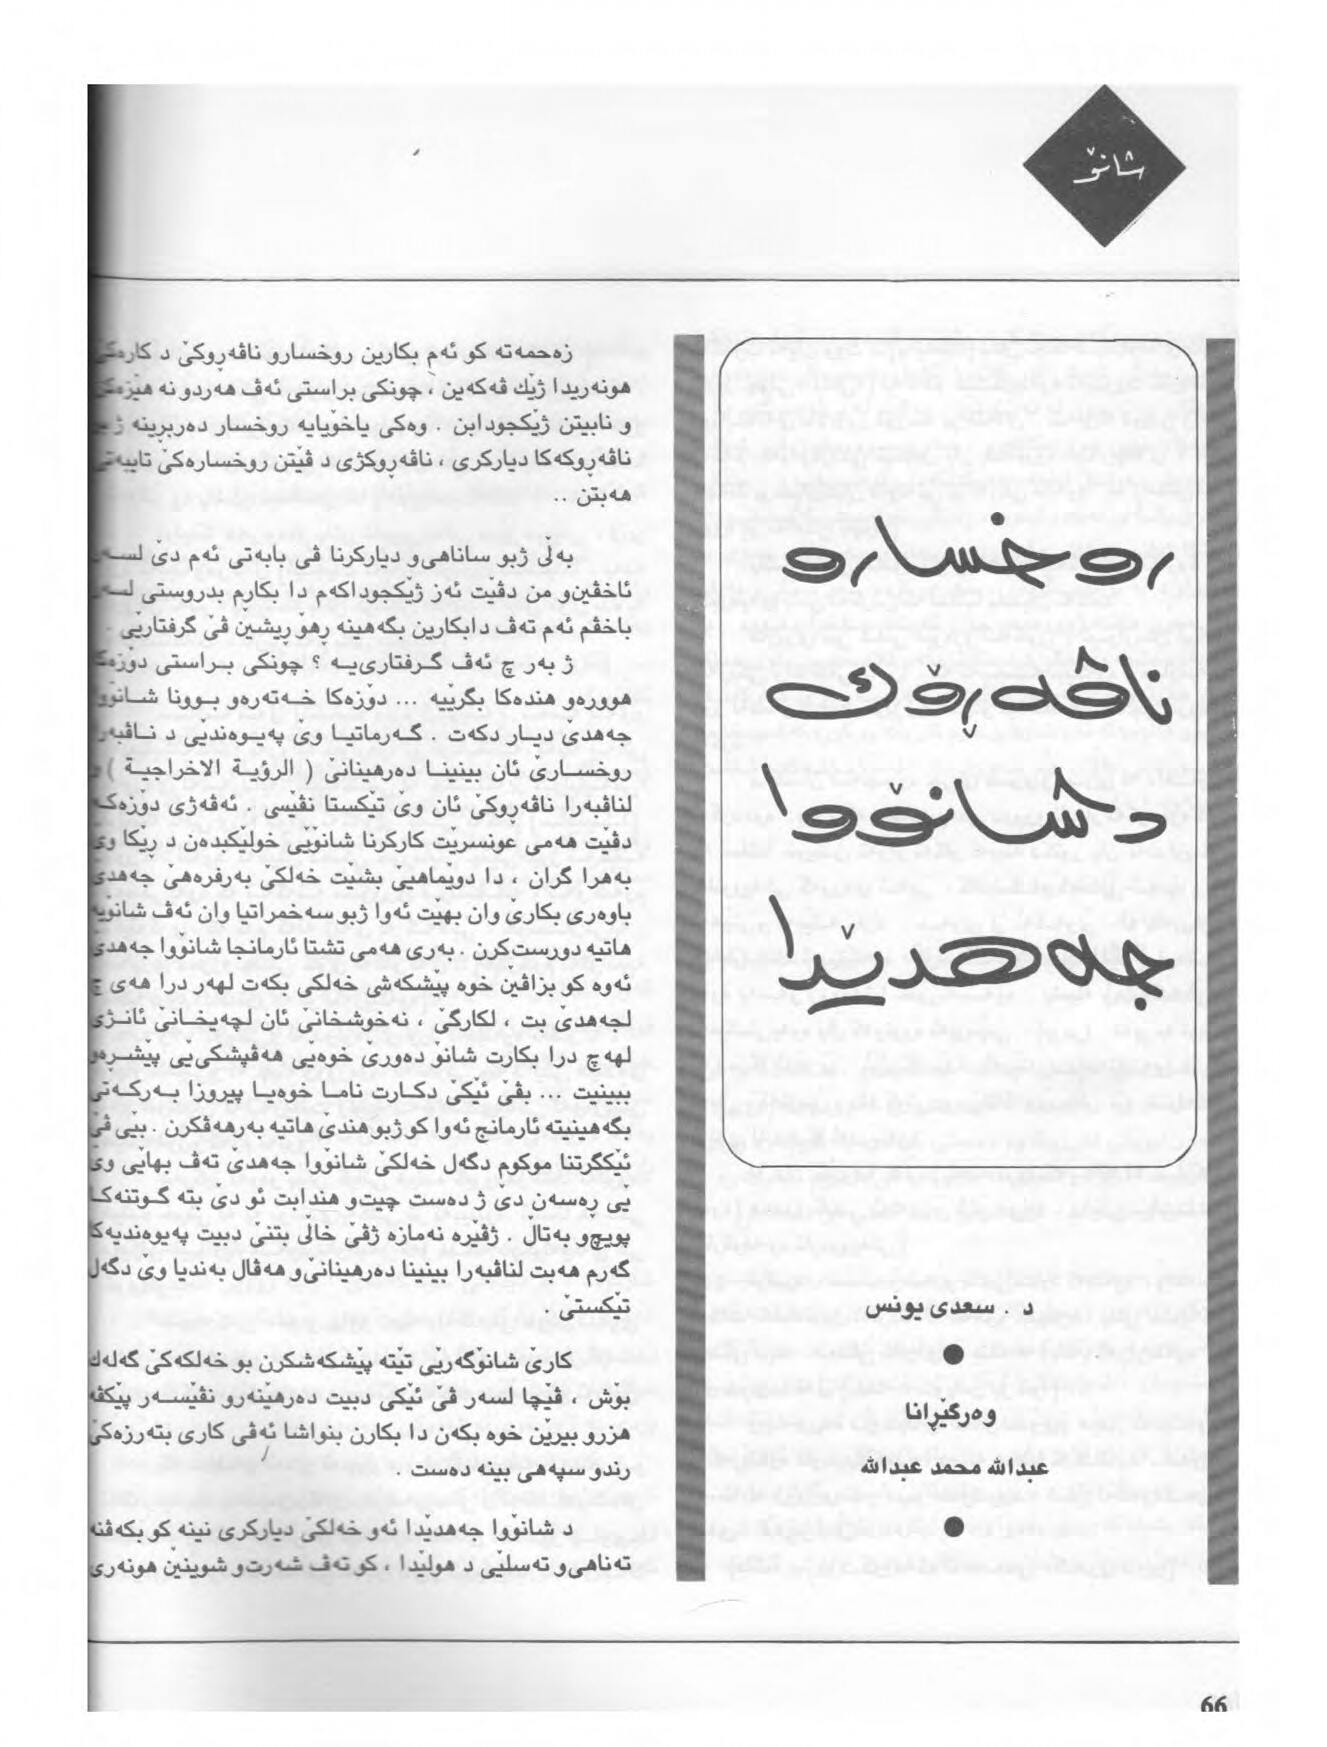 شانۆ
روخسارو
ناڤەڕۆك
دشانۆوا
جەهدێدا
د . سعدی یونس
وەرگێڕانا
عبدالله محمد عبدالله
زەحمەتە کو ئەم بکارین روخسارو ناڤەڕوکێ د کارەکێ
هونەریدا ژێك ڤەکەین ، چونکی براستی ئەڤ هەردو نە هێزەکن
و نابیتن ژێکجودابن . وەکی یاخۆیایە روخسار دەربڕینە ژ
ناڤەڕوکەکا دیارکری ، ناڤەڕوکژی د ڤێتن روخسارەکێ تایبەتی
هەبتن ..
بەلێ ژبو ساناهی‌و دیارکرنا ڤی بابەتی ئەم دێ لسەر
ئاخڤین‌و من دڤێت ئەز ژێکجوداکەم دا بکارم بدروستی لسەر
باخڤم ئەم تەڤ دابکارین بگەهینە رهۆڕیشێن ڤێ گرفتاریێ .
ژ بەر چ ئەڤ گرفتاری‌یە ؟ چونکی براستی دۆزەکا
هوورەو هندەکا بگرێیە ... دۆزەکا خەتەرەو بوونا شانۆوا
جەهدی دیار دکەت . گەرماتیا وێ پەیوەندیێ د ناڤبەرا
روخسارێ ئان بینینا دەرهینانێ ( الرؤیة الاخراجیة ) و
لناڤبەرا ناڤەڕوکێ ئان وێ تێکستا نڤێسی . ئەڤەژی دۆزەکە
دڤێت هەمی عونسرێت کارکرنا شانۆیێ خولیکبدەن د ڕێکا وێ
بەهرا گران ، دا دویماهیێ بشێت خەلکێ بەرفرەهی جەهدی
باوەری بکارێ وان بهێت ئەوا ژبو سەخمراتیا وان ئەڤ شانۆیە
هاتیە دورستکرن . بەری هەمی تشتا ئارمانجا شانۆوا جەهدی
ئەوە کو بزاڤێن خوە پێشکەشی خەلکی بکەت لهەر درا هەی چ
لجەهدی بت ، لکارگێ ، نەخوشخانێ ئان لچەیخانێ ئانژی
لهەچ درا بکارت شانۆ دەوری خوەیی هەڤپشکی‌یێ پێشڕەو
ببینیت ... بڤێ ئێکێ دکارت ناما خوەیا پیروزا بەرکەتی
بگەهینیتە ئارمانج ئەوا کو ژبو هندی هاتبە بەرهەڤکرن . بیێ ڤێ
ئێکگرتنا موکوم دگەل خەلکێ شانۆوا جەهدێ تەڤ بهایێ وێ
یێ ڕەسەن دێ ژ دەست چیت‌و هندابت ئو دێ بتە گوتنەکا
پویچ‌و بەتال . ژڤێرە نەمازە ژڤێ خالێ بتنێ دبیت پەیوەندیەکا
گەرم هەبت لناڤبەرا بینینا دەرهینانێ‌و هەڤال بەندیا وێ دگەل
تێکستێ .
کارێ شانۆگەریێ تێتە پێشکەشکرن بو خەلکەکێ گەلەك
بۆش ، ڤێچا لسەر ڤێ ئێکی دبیت دەرهێنەرو نڤێسەر پێکڤە
هزرو بیرێن خوە بکەن دا بکارن بنواشا ئەڤی کاری بتەرزەکێ
رندو سپەهی بینە دەست .
د شانۆوا جەهدێدا ئەو خەلکێ دیارکری نینە کو بکەڤنە
تەناهی‌و تەسلیێ د هولێدا ، کو تەڤ شەرت‌و شوینێن هونەری
66